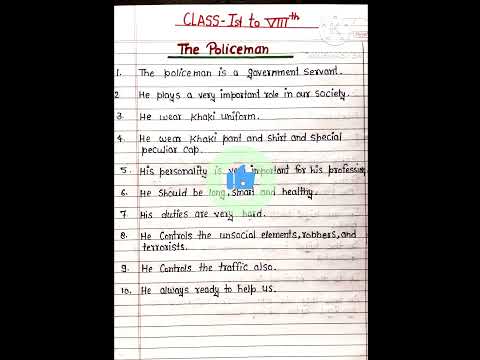 CLASS-Ist to VIIIth
The Policeman
1. The policeman is a government servant.
2 He plays a very important role in our society.
3. He wear Khaki uniform.
4. He wear Khaki pant and shirt and special
peculiar cap.
5. His personality is very important for his profession
6. He Should be long, smart and healthy.
7. His duties are very hard.
8. He Controls the unsocial elements, robbers, and
terrorists.
9. He Controls the traffic also.
10. He always ready to help us.